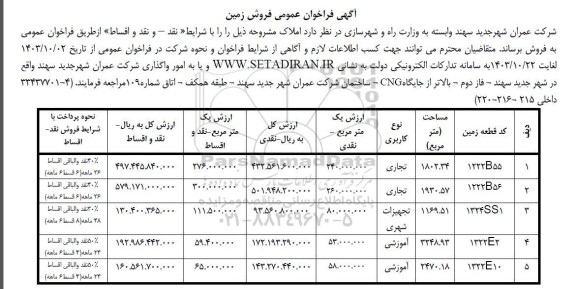 آگهی فراخوان عمومی فروش زمین
شرکت عمران شهرجدید سهند وابسته به وزارت راه و شهرسازی در نظر دارد املاک مشروحه ذیل را را با شرایط« نقد – و نقد و اقساط» ازطریق فراخوان عمومی
به فروش برساند. متقاضیان محترم می توانند جهت کسب اطلاعات لازم و آگاهی از شرایط فراخوان و نحوه شرکت در فراخوان عمومی از تاریخ ۱۴۰۳/۱۰/۰۲
لغایت ۱۴۰۳/۱۰/۲۲به سامانه تدارکات الکترونیکی دولت به نشانی WWW.SETADIRAN.IR و یا به امور واگذاری شرکت عمران شهرجدید سهند واقع
در شهر جدید سهند – فاز دوم – بالاتر از جایگاهCNG – ساختمان شرکت عمران شهر جدید سهند – طبقه همکف – اتاق شماره۱۰۹مراجعه فرمایند. (۴-۳۳۴۳۷۷۰۱
داخلی ۲۱۵ -۲۱۶-۲۲۰)
ردیف کد قطعه زمین مساحت (متر مربع) نوع کاربری ارزش یک متر مربع – نقدی ارزش کل به ریال-نقدی ارزش یک متر مربع-نقد و اقساط ارزش کل به ریال- نقد و اقساط نحوه پرداخت با شرایط فروش نقد- اقساط
۱ ۱۲۲۲B۵۵ ۱۸۰۲.۳۴ تجاری ۴۳۲.۵۶۱.۶۰۰.۰۰۰ ۲۷۶.۰۰۰.۰۰۰ ۴۹۷.۴۴۵.۸۴۰.۰۰۰ ۳۰٪نقد والباقی اقساط
۲ ۱۲۲۲B۵۶ ۱۹۳۰.۵۷ تجاری ۲۶۰.۰۰۰.۰۰۰ ۵۰۱.۹۴۸.۲۰۰.۰۰۰ ۳۰۰.۰۰۰.۰۰۰ ۵۷۹.۱۷۱.۰۰۰.۰۰۰ ۳۰٪نقد والباقی اقساط
۳ ۱۳۲۴SS۱ ۱۱۶۹.۵۱ تجهیزات شهری ۸۰.۰۰۰.۰۰۰ ۹۳.۵۶۰.۸۰۰.۰۰۰ ۱۱۱.۵۰۰.۰۰۰ ۱۳۰.۴۰۰.۳۶۵.۰۰۰
۴ ۱۳۲۲E۲ ۳۲۴۸.۹۳ آموزشی ۵۳.۰۰۰.۰۰۰ ۱۷۲.۱۹۳.۲۹۰.۰۰۰ ۵۹.۴۰۰.۰۰۰ ۱۹۲.۹۸۶.۴۴۲.۰۰۰ ۵۰٪نقد والباقی اقساط
۵ ۱۳۲۲E۱۰ ۲۴۷۰.۱۸ آموزشی ۵۸.۰۰۰.۰۰۰ ۱۴۳.۲۷۰.۴۴۰.۰۰۰ ۶۵.۰۰۰.۰۰۰ ۱۶۰.۵۶۱.۷۰۰.۰۰۰ ۵۰٪نقد والباقی اقساط
۰۲۱-۸۸۳۴۹۶۷۰-۵